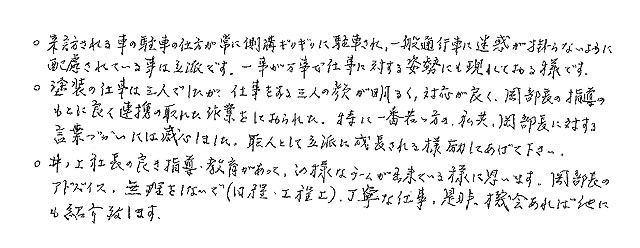 ○ 来訪される車の駐車の仕方が常に側溝ギリギリに駐車され、一般通行車に迷惑が掛らないように
配慮されている事は立派です。一事が万事で仕事に対する姿勢にも現れておる様です。
○ 塗装の仕事は三人でしたが、仕事をする三人の顔が明るく、対応が良く、岡部長の指導の
もとに良く連携の取れた作業をしておられた。特に一番若い方の、私共、岡部長に対する
言葉づかいには感心しました。職人として立派に成長される様励してあげて下さい。
○ 井ノ上社長の良き指導、教育があって、この様なチームが出来ている様に思います。岡部長の
アドバイス、無理をしないで(日程・工程上)、丁寧な仕事、是非、機会あれば他に
も紹介致します。